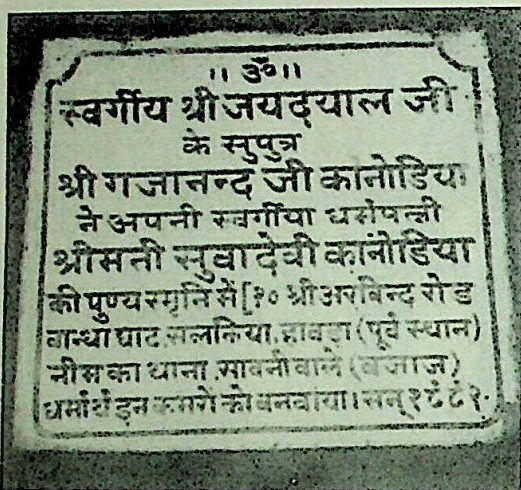 ।। ॐ।।
स्वर्गीय श्री जयदयाल जी
के सुपुत्र
श्री गजानन्द जी कानोडिया
ने अपनी स्वर्गीया धर्मपत्नी
श्रीमती सुवादेवी कानोडिया
की पुण्य स्मृति में [१० श्री अरबिन्द रोड
बान्धा घाट, सलकिया, हावड़ा (पूर्व स्थान)
नीम का थाना, मावन्डावाले (बजाज)
धर्मार्थ इन कमरों को बनवाया। सन् १९९१